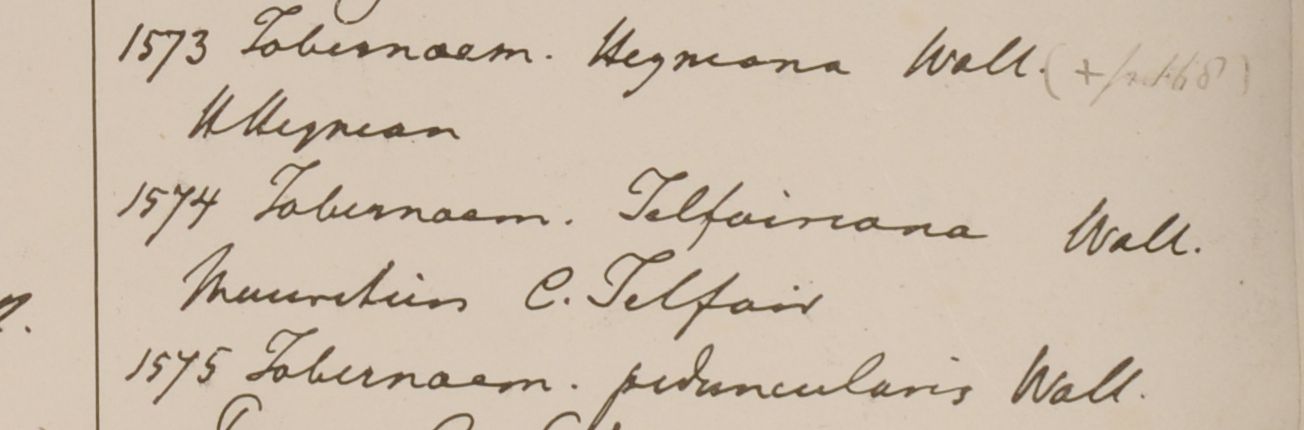 1573 Tabernaem. Heyneana Wall.
H Heynean
1574 Tabernaem. Telfairiana Wall.
Mauritius C. Telfair
1575 Tabernaem. peduncularis Wall.